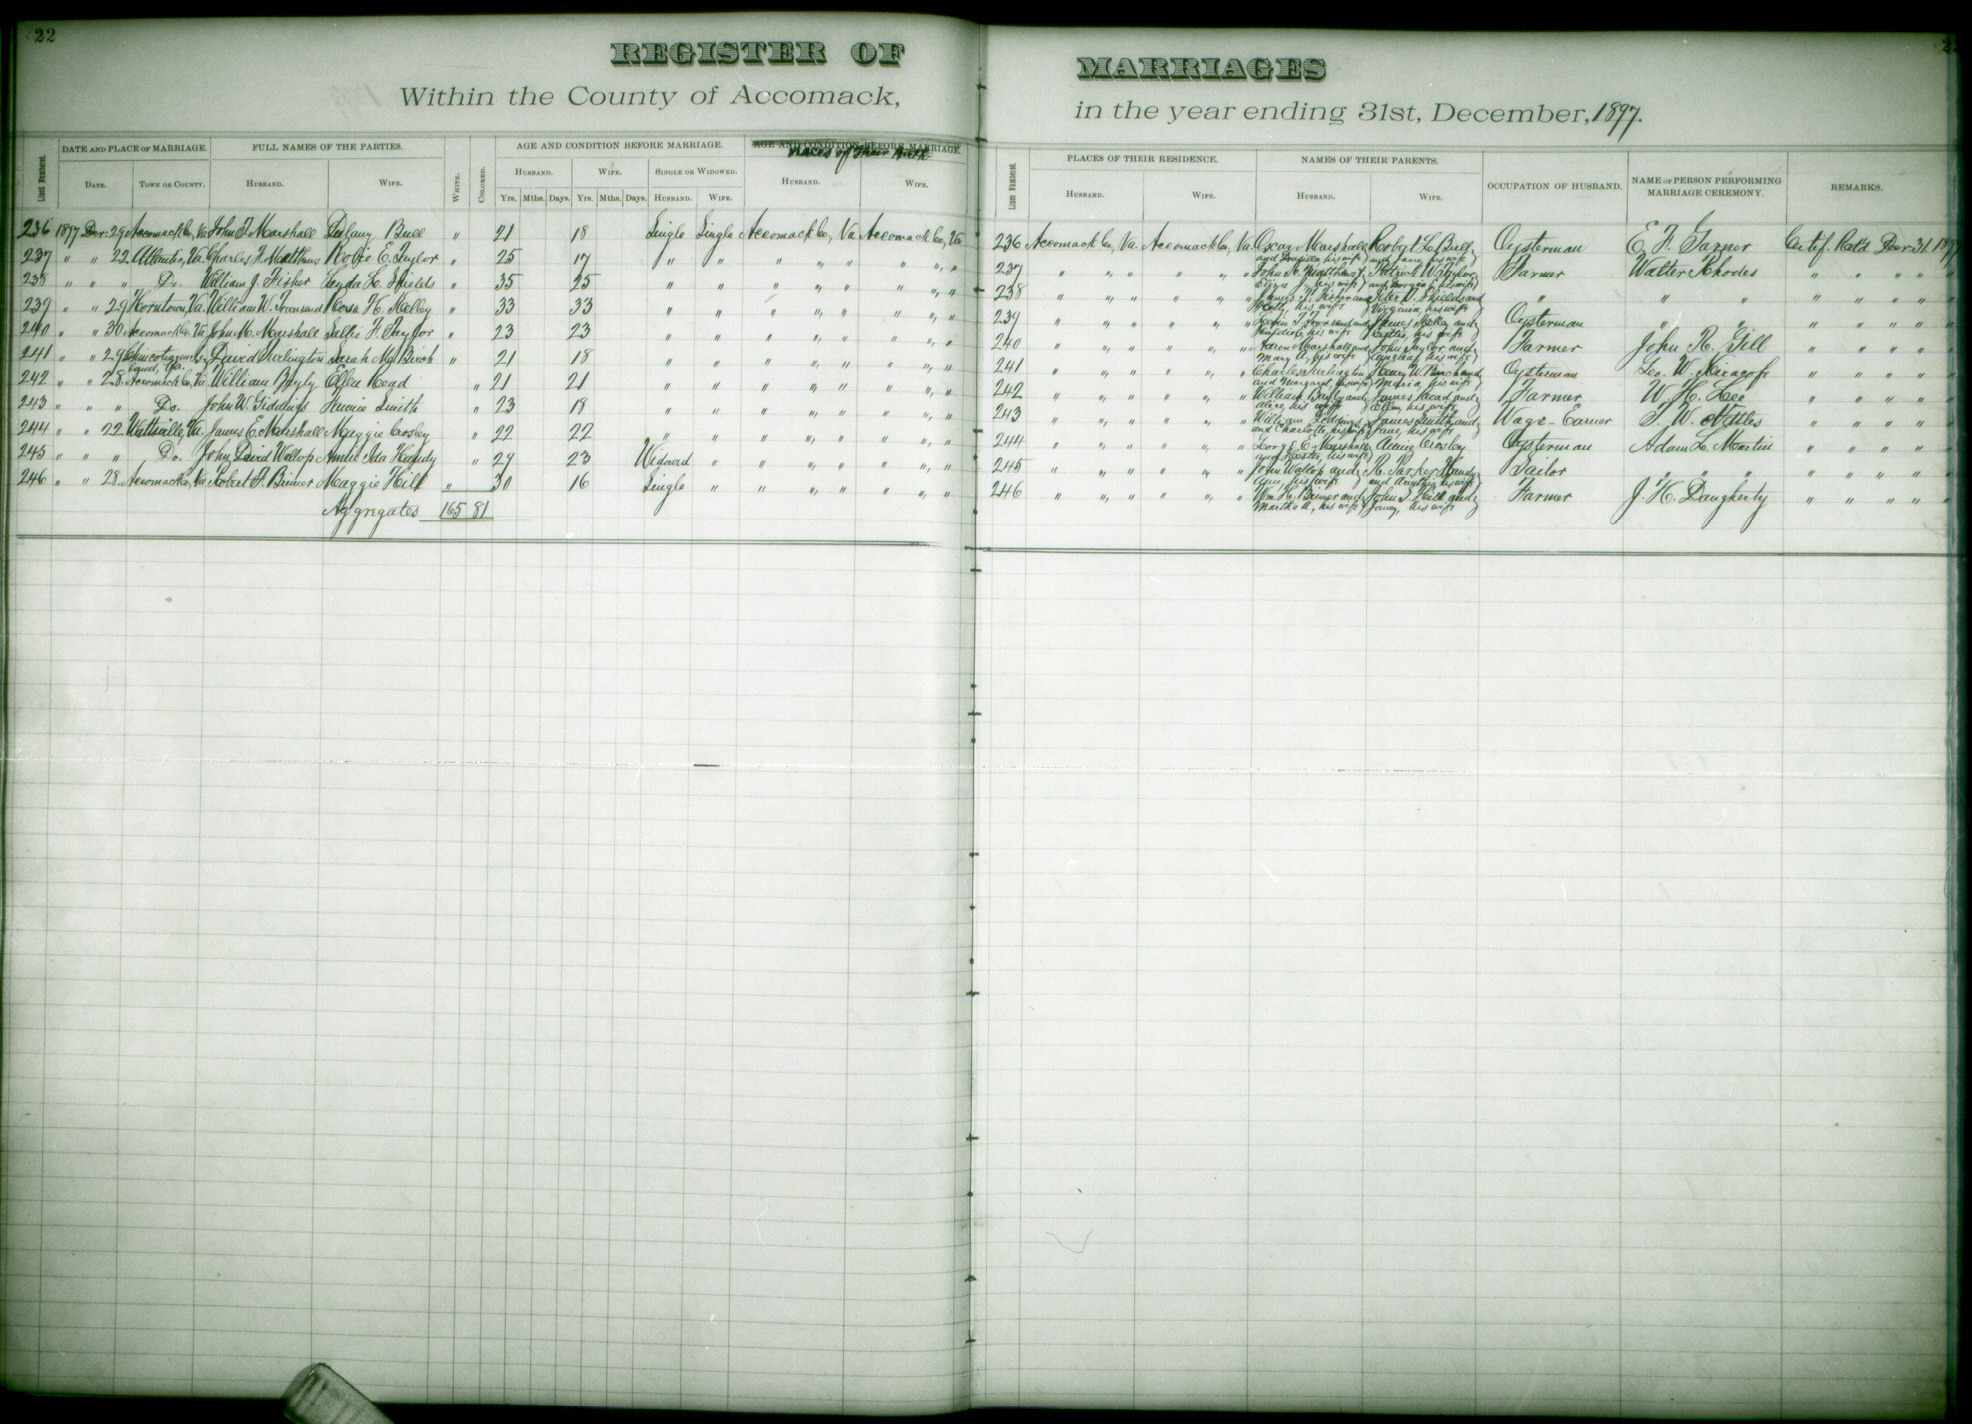 22
REGISTER OF
MARRIAGES
Within the County of Accomack,
in the year ending 31st, December, 1897.
Lines Numbered. DATE AND PLACE OF MARRIAGE. FULL NAMES OF THE PARTIES. WHITE. COLORED. AGE AND CONDITION BEFORE MARRIAGE. AGE AND CONDITION BEFORE MARRIAGE.
Places of Their Birth
HUSBAND. WIFE. SINGLE OR WIDOWED. HUSBAND. WIFE.
DATE. TOWN OR COUNTY. HUSBAND. WIFE.
Yrs. Mths. Days. Yrs. Mths. Days. HUSBAND. WIFE.
236 1897 Dec. 29 Accomack Co., Va John T. Marshall Bull " 21 18 Single Single Accomack Co., Va Accomack Co., Va
237 " " 22 Atlantic, Va. Charles F. Matthews E. Taylor " 25 17 " " " " " " " "
238 " " " Do. William J. Fisher Lyda L. Shields " 35 25 " " " " " " " "
239 " " 29 Horntown, Va. William W. Townsend H. Melley " 33 33 " " " " " " " "
240 " " 30 Accomack Co. Va John M. Marshall Sallie F. Taylor " 23 23 " " " " " " " "
241 " " 29 Chincoteague Is- David Sarah M. Birch " 21 18 " " " " " " " "
land, Va.
242 " " 28 Accomack Co, Va. William Bayly Ellen Head " 21 21 " " " " " " " "
243 " " " Do. John W. Giddings Smith " 23 18 " " " " " " " "
244 " " 22 Wattsville, Va. James E. Marshall Maggie Crosley " 22 22 " " " " " " " "
245 " " " Do. John David Wallop Annie Ida Handy " 29 23 Widowed " " " " " " "
246 " " 28 Accomack Co, Va Robert F. Maggie Hill " 30 16 Single " " " " " " "
Aggregates 165 81
Lines Numbered. PLACES OF THEIR RESIDENCE. NAMES OF THEIR PARENTS. OCCUPATION OF HUSBAND. NAME OF PERSON PERFORMING MARRIAGE CEREMONY. REMARKS.
HUSBAND. WIFE. HUSBAND. WIFE.
236 Accomack Co., Va. Accomack Co., Va. Oscar Marshall Robt L. Bull Oysterman E. F. Garner Certif. Ret'd Dec 31 1897
and his wife and Jane, his wife
237 " " " " " " John Matthews Patrick W. Taylor Farmer Walter Rhodes " " " "
Eliza J., his wife and Georgia, his wife
238 " " " " " " James T. Fisher and Peter D. Shields and " " " " " " "
his wife Virginia, his wife
239 " " " " " " T. Townsend and James Melley and Oysterman " " " " " "
his wife his wife
240 " " " " " " Aaron Marshall and John Taylor and Farmer John R. Gill " " " "
Mary A. his wife his wife
241 " " " " " " Charles and Henry W. Birch and Oysterman Geo. W. Kiracofe " " " "
and Margaret, his wife Maria, his wife
242 " " " " " " William Bayly and James Head and Farmer W. H. Lee " " " "
Alice, his wife Ellen, his wife
243 " " " " " " William Giddings James Smith and Wage-Earner T. W. Nettles " " " "
and Charlotte, his wife Jane, his wife
244 " " " " " " George E. Marshall Crosley Oysterman Adam L. Martin " " " "
and Hester, his wife
245 " " " " " " John Wallop and R. Parker Handy Sailor " " " " " "
Ann, his wife and his wife
246 " " " " " " Wm. H. and John T. Hill and Farmer J. H. Daugherty " " " "
Martha A., his wife Janey, his wife